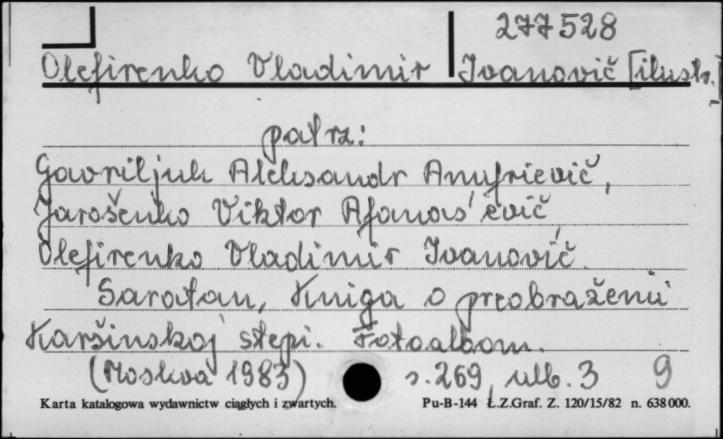 277528
Olefirenko Vladimir Ivanovič [ilustr.]
patrz:
Gavriljuk Aleksandr Anufrievič,
Jarošenko Viktor Afanas'evič,
Olefirenko Vladimir Ivanovič.
Saratan, Kniga o preobraženii
Karšinskoj stepi. Fotoalbom.
(Moskva 1983) s. 269, nlb. 3 9
Karta katalogowa wydawnictw ciągłych i zwartych. Pu-B-144 Ł.Z.Graf. Z. 120/15/82 n. 638000.